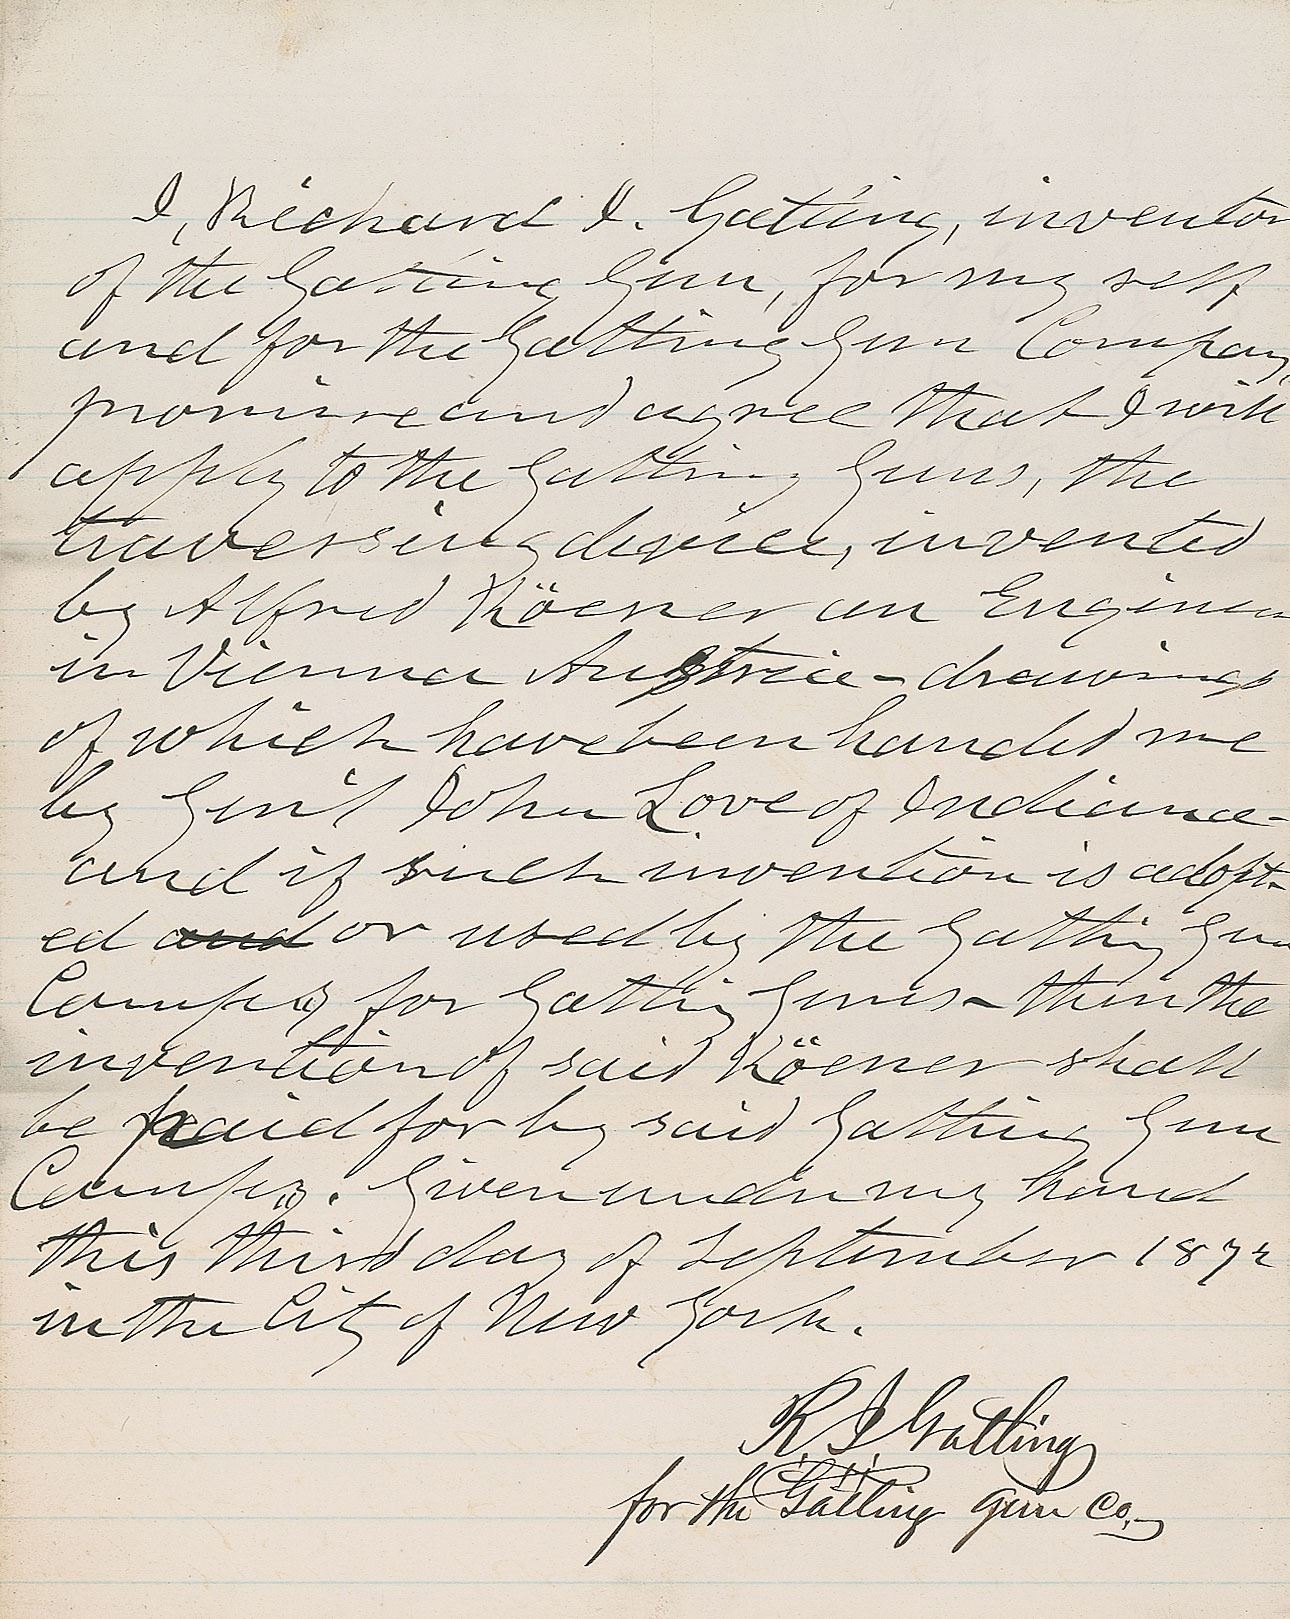 I, Richard J. Gatling, inventor
of the Gatling Gun, for my self
and for the Gatling Gun Company,
promise and agree that I will
apply to the Gatling Guns, the
traversing device, invented
by Alfred Köener an Engineer
in Vienna Austria - drawings
of which have been handed me
by Gen'l John Love of Indiana -
and if such invention is adopt-
ed and or used by the Gatling Gun
Compy for Gatling Guns - then the
invention of said Köener shall
be paid for by said Gatling Gun
Compy. Given under my hand
this third day of September 1872
in the City of New York.
R. J. Gatling
for the Gatling Gun Co.